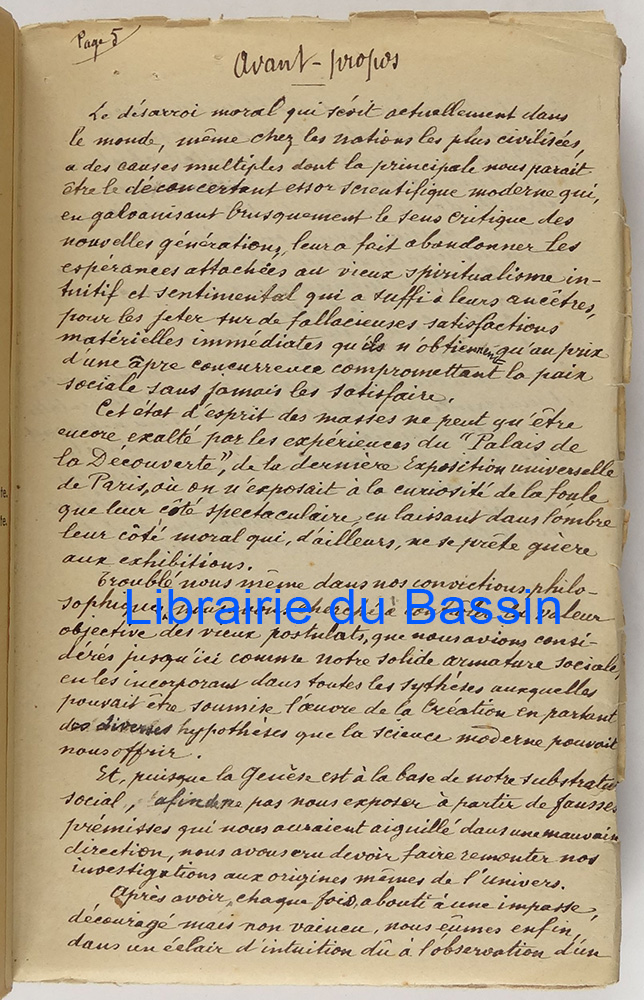 Page 5
Avant-propos
Le désarroi moral qui sévit actuellement dans
le monde, même chez les nations les plus civilisées,
a des causes multiples dont la principale nous parait
être le déconcertant essor scientifique moderne qui,
en galvanisant brusquement le sens critique des
nouvelles générations, leur a fait abandonner les
espérances attachées au vieux spiritualisme in-
tuitif et sentimental qui a suffi à leurs ancêtres,
pour les jeter sur de fallacieuses satisfactions
matérielles immédiates qu'ils n'obtiennent qu'au prix
d'une âpre concurrence compromettant la paix
sociale sans jamais les satisfaire.
Cet état d'esprit des masses ne peut qu'être
encore exalté par les expériences du "Palais de
la Découverte", de la dernière Exposition universelle
de Paris, où on n'exposait à la curiosité de la foule
que leur côté spectaculaire, en laissant dans l'ombre
leur côté moral qui, d'ailleurs, ne se prête guère
aux exhibitions.
Troublé nous même dans nos convictions philo-
sophiques, nous valeur
Librairie du Bassin
objective des vieux postulats, que nous avions consi-
dérés jusqu'ici comme notre solide armature sociale,
en les incorporant dans toutes les sythèses auxquelles
pouvait être soumise l'œuvre de la Création en partant
des diverses hypothèses que la science moderne pouvait
nous offrir.
Et, puisque la Genèse est à la base de notre substratu
social, afin de ne pas nous exposer à partir de fausses
prémisses qui nous auraient aiguillé dans une mauvaise
direction, nous avons cru devoir faire remonter nos
investigations aux origines mêmes de l'Univers.
Après avoir, chaque fois, abouti à une impasse,
découragé mais non vaincu, nous eûmes enfin,
dans un éclair d'intuition dû à l'observation d'un